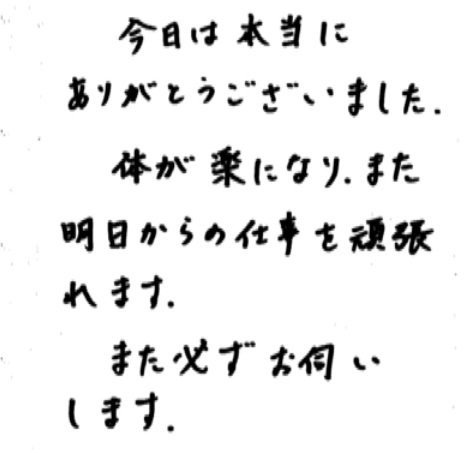 今日は本当に
ありがとうございました.
体が楽になり.また
明日からの仕事を頑張
れます.
また必ずお伺い
します.